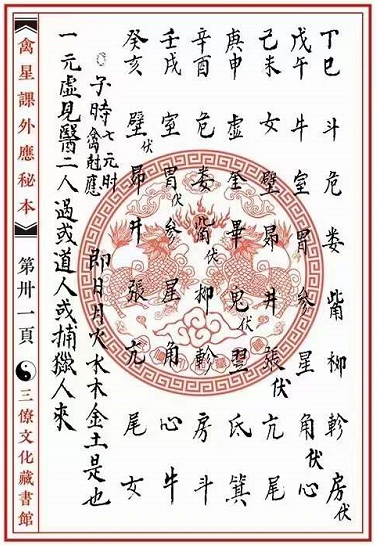 丁巳斗危娄觜柳軫房伏
戊午牛室胃参星角伏心
己未女壁昴井張伏亢尾
庚申虚奎畢鬼伏翌氐箕
辛酉危娄觜伏柳軫房斗
壬戌室胃伏参星角心牛
癸亥壁伏昴井張亢尾女
○子時七元时禽尅應 即日月火水木金土是也
一元虚見醫二人過或道人或捕獵人來
禽星課外應秘本
第卅一頁
三僚文化藏書館